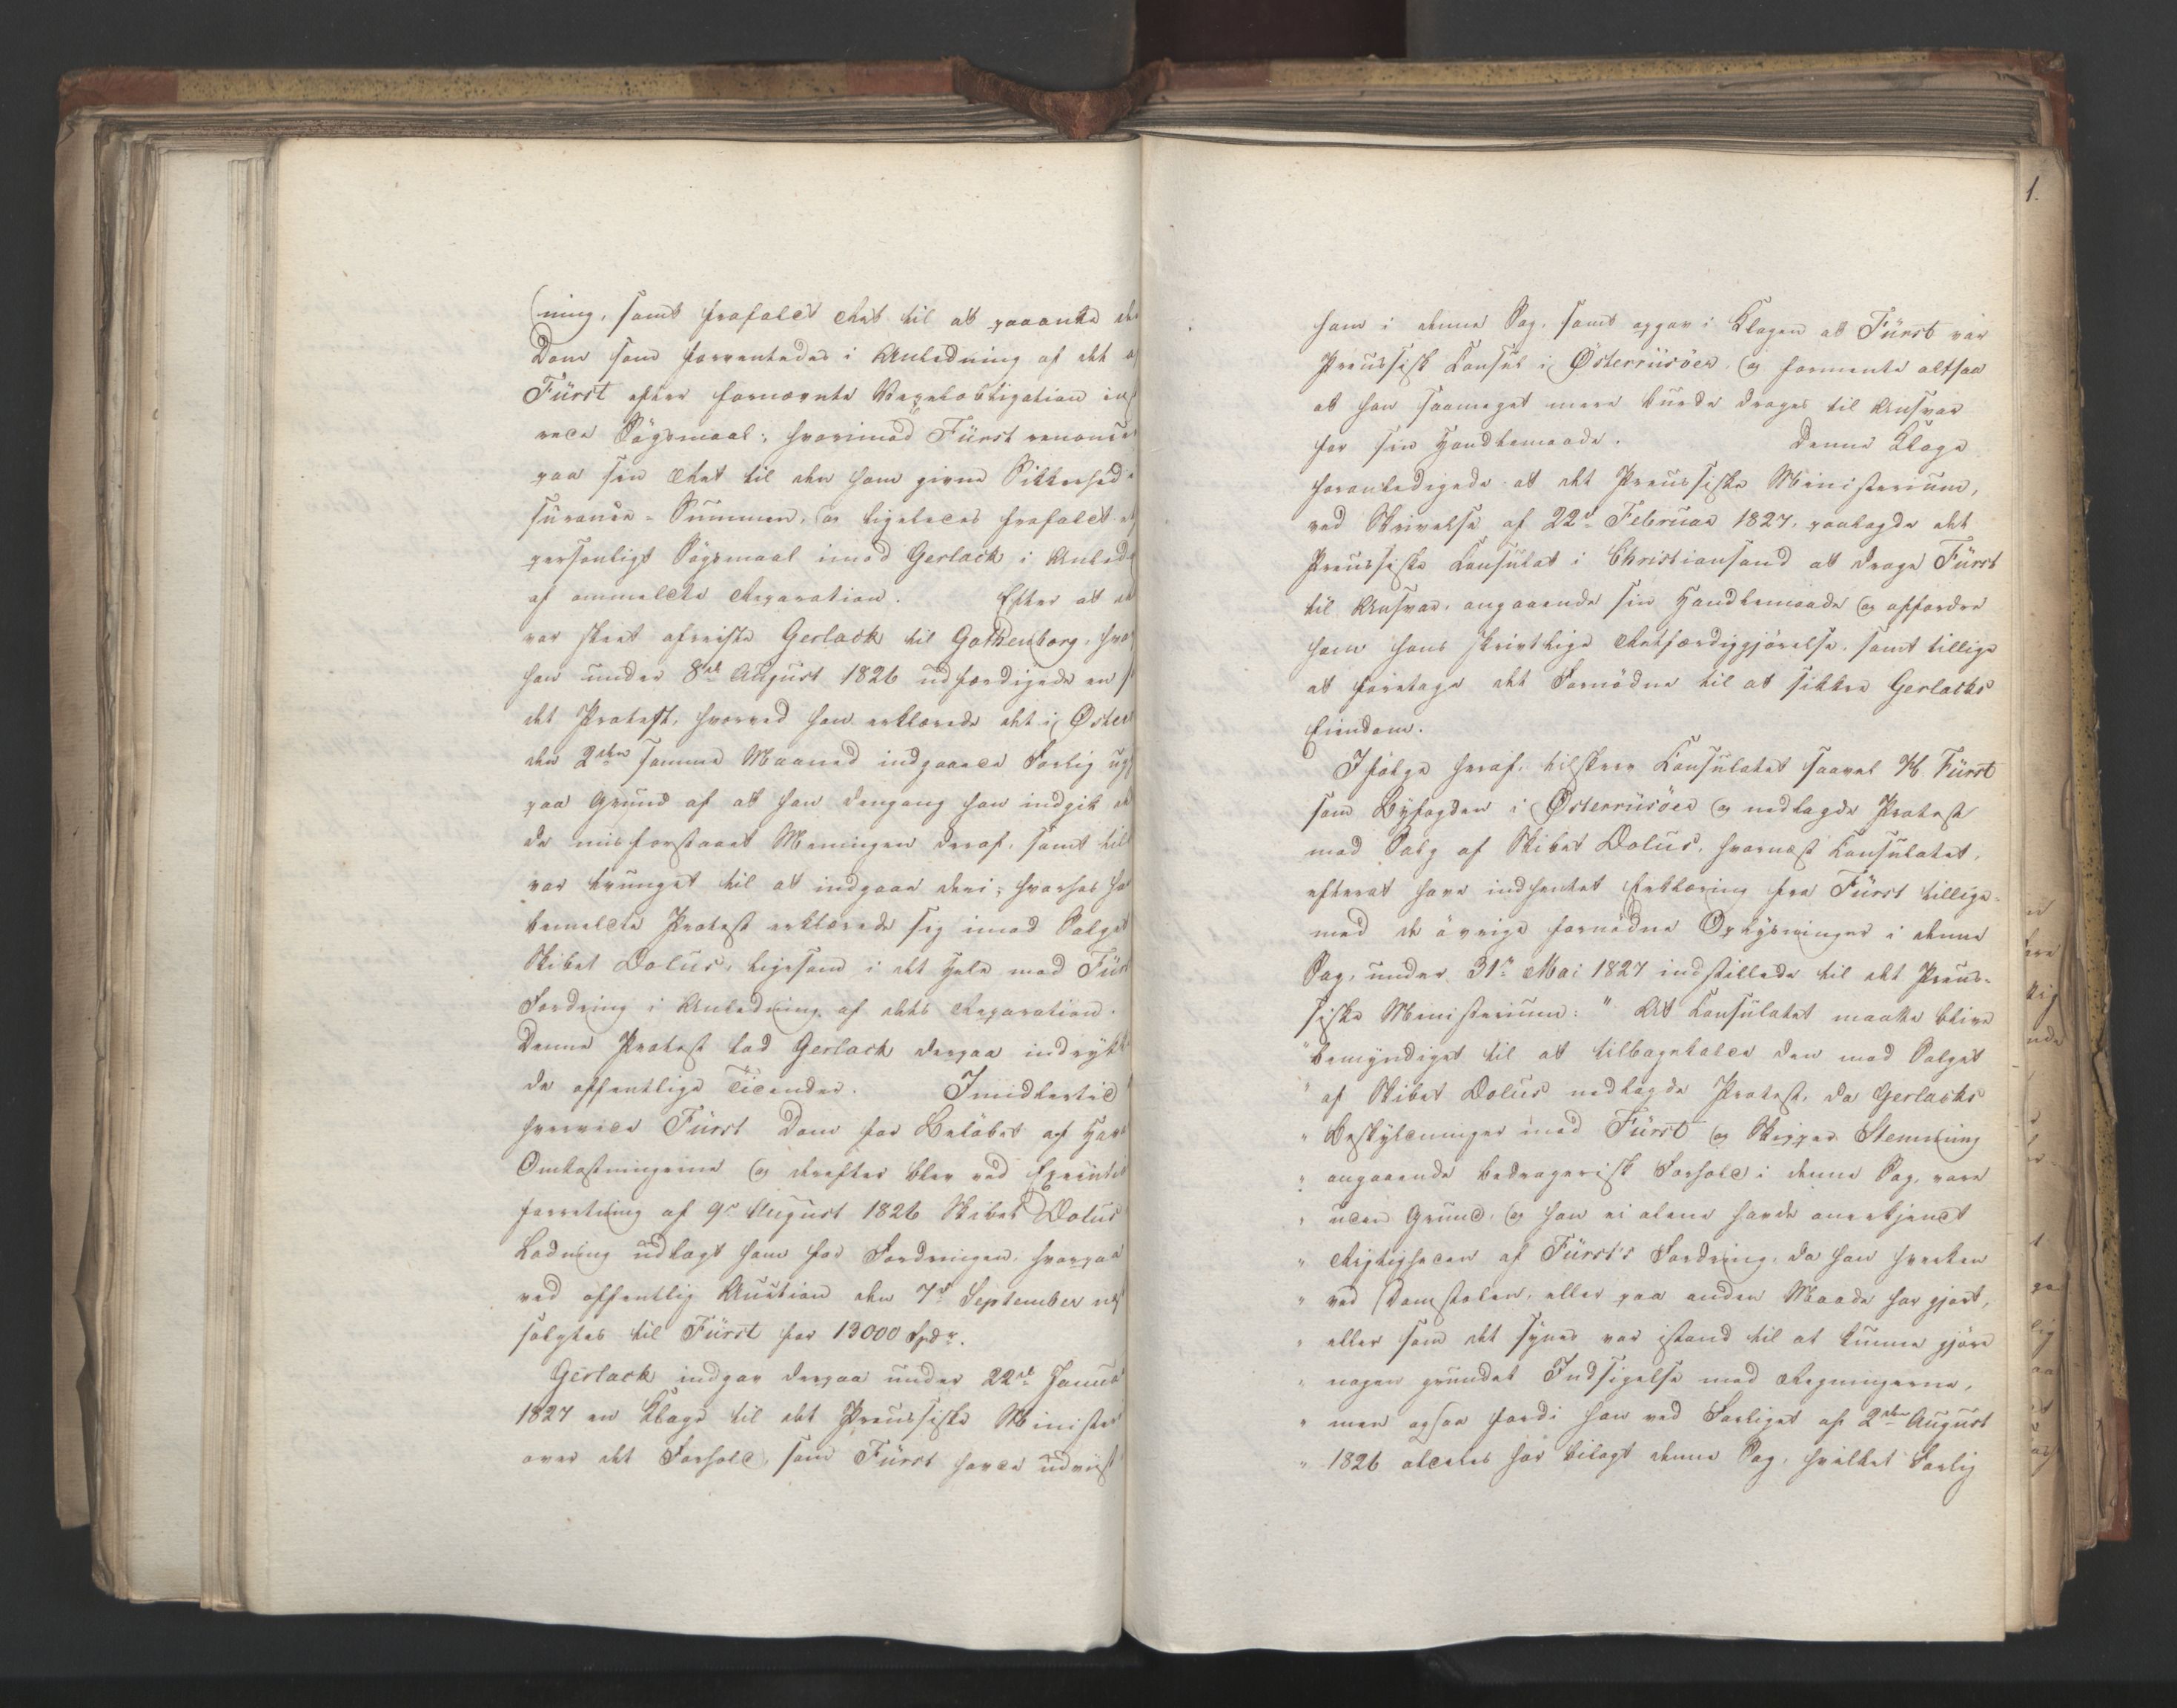 ning, samt frafaldt Ret til at paaanke de
Dom som forventedes i Anledning af det a
Fürst efter fornævnte Vexelobligation in
vede Sögsmaal; hvorimod Fürst renonce
paa sin Ret til den ham givne Sikkerhed i
surance-Summen, og ligeledes frafaldt a
personligt Sögsmaal imod Gerlach i Anled
af anmeldte Reparation. Efter at de
var skeet afreiste Gerlach til Gothenborg, hvo
han under 8de August 1826 udfærdigede en s
det Protest, hvorved han erklærede det i Öster
den 2den samme Maaned indgaaede Forlig ug
paa Grund af at han dengang han indgik de
de misforstaaet Meningen deraf, samt til
var tvunget til at indgaae deri; hvorhos ha
bemeldte Protest erklærede sig imod Salget
Skibet Dolus, ligesom i det Hele mod Für
Fordring i Anledning af dets Reparation.
Denne Protest lod Gerlach derpaa indrykk
de offentlige Tidender. Imidlertid
hvervede Fürst Dom for Belöbet af Hav
Omkostningerne og derefter blev ved Executi
forretning af 9de August 1826 Skibet Dolus
Ladning udlagt ham for Fordringen, hvorpaa
ved offentlig Auction den 7de September næs
solgtes til Fürst for 13000 Spdr.
Gerlach indgav derpaa under 22de Janua
1827 en Klage til det Preussiske Minister
over det Forhold, som Fürst havde udviist
1.
ham i denne Sag, samt opgav i Klagen at Fürst var
Preussisk Consul i Österriisöer, og formente altsaa
at han saameget mere burde drages til Ansvar
for sin Handlemaade. Denne Klage
foranledigede at det Preussiske Ministerium,
ved Skrivelse af 22de Februar 1827, paalagde det
Preussiske Consulat i Christiansand at drage Fürst
til Ansvar, angaaende sin Handlemaade og affordre
ham hans skrivtlige Retfærdiggjörelse, samt tillige
at foretage det Fornödne til at sikkre Gerlachs
Eiendom.
Ifölge heraf, tilskrev Consulatet saavel Hr Fürst
som Byfogden i Österriisöer og nedlagde Protest
mod Salg af Skibet Dolus, hvornæst Consulatet,
efterat have indhentet Erklæring fra Fürst tillige-
med de övrige fornödne Oplysninger i denne
Sag, under 31te Mai 1827 indstillede til det Preus-
siske Ministerium: " At Consulatet maatte blive
" bemyndiget til at tilbagekalde den mod Salget
" af Skibet Dolus nedlagde Protest, da Gerlachs
" Beskyldninger mod Fürst og Skipper Stemming
" angaaende bedragerisk Forhold i denne Sag, vare
" uden Grund, og han ei alene havde anerkjendt
" Rigtigheden af Fürst's Fordring, da han hverken
" ved Domstolen, eller paa anden Maade har gjort,
" eller som det synes var istand til at kunne gjöre
" nogen grundet Indsigelse mod Regningerne,
" men ogsaa fordi han ved Forliget af 2den August
" 1826 aldeles har bilagt denne Sag, hvilket Forlig